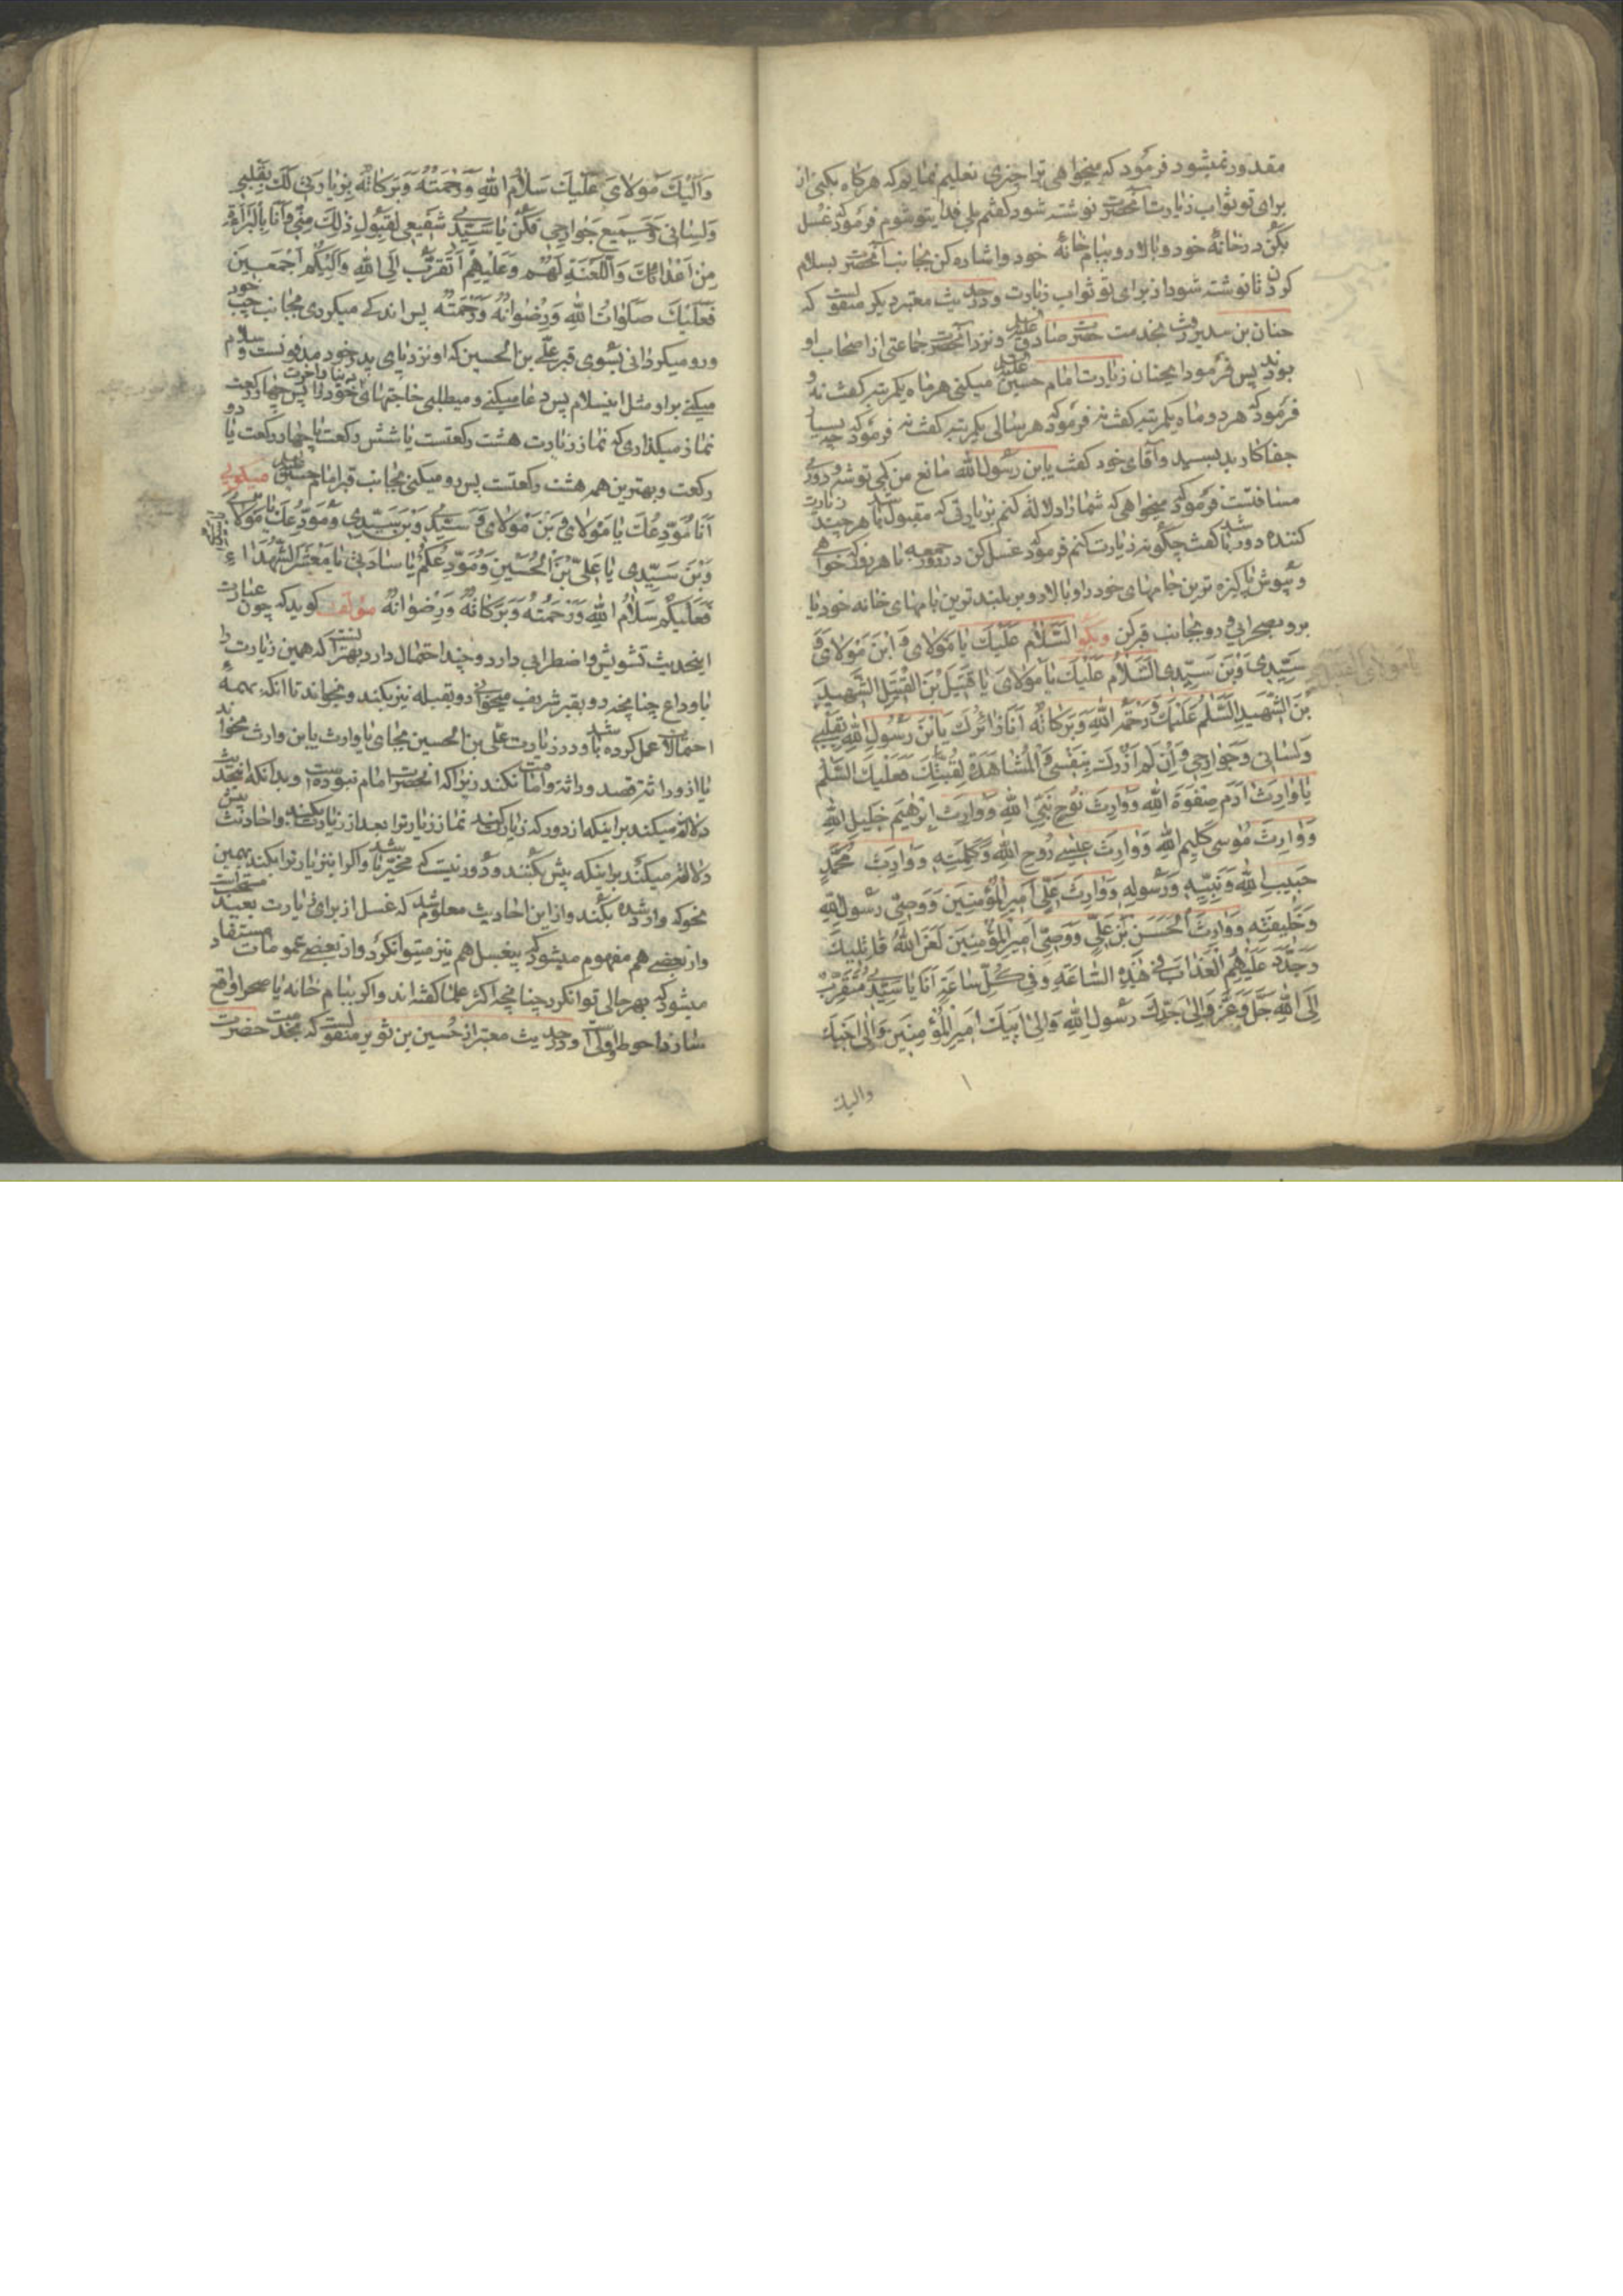 مقدور نمیشود فرمود که میخواهی ترا چیزی تعلیم نمایم که هرگاه بکنی از
برای تو ثواب زیارت آنحضرت نوشته شود گفتم بلی فدای تو شوم فرمود که غسل
بکن در خانهٔ خود و بالا رو ببام خانهٔ خود و اشاره کن بجانب آنحضرت بسلام
کردن تا نوشته شود از برای تو ثواب زیارت و در حدیث معتبر دیگر منقولست که
حنان بن سدیر رفت بخدمت حضرت صادق علیه السلام و نزد آنحضرت جماعتی از اصحاب او
بودند پس فرمود ای حنان زیارت امام حسین علیه السلام میکنی هر ماه یکمرتبه گفت نه
فرمود که هر دو ماه یکمرتبه گفت نه فرمود که هر سالی یکمرتبه گفت نه فرمود که چه بسیار
جفاکارید بسید و آقای خود گفت یابن رسول الله مانع من کمی توشه و دوری
مسافتست فرمود که میخواهی که شما را دلالت کنم بزیارتی که مقبول باشد هر چند زیارت
کننده دور باشد گفت چگونه زیارت کنم فرمود که غسل کن در روز جمعه یا هر روز که خواهی
و بپوش پاکیزه ترین جامهای خود را و بالا رو بر بلندترین بامهای خانه خود یا
برو بصحرایی و رو بجانب قبر کن و بگو اَلسَّلامُ عَلَیْكَ یا مَوْلایَ وَابْنَ مَوْلایَ وَ
سَیِّدی وَبْنَ سَیِّدی اَلسَّلامُ عَلَیْكَ یا مَوْلایَ یا قَتیلَ بْنَ الْقَتیلِ الشَّهیدَ
بْنَ الشَّهیدِ اَلسَّلامُ عَلَیْكَ وَرَحْمَةُ اللهِ وَبَرَکاتُهُ اَنَا زائِرُكَ یَابْنَ رَسُولِ اللهِ بِقَلْبی
وَلِسانی وَجَوارِحی وَاِنْ لَمْ اَزُرْكَ بِنَفْسی وَالْمُشاهَدَةِ لِقُبَّتِكَ فَعَلَیْكَ السَّلامُ
یا وارِثَ ادَمَ صِفْوَةِ اللهِ وَوارِثَ نُوحٍ نَبِیِّ اللهِ وَوارِثَ اِبْرهیمَ خَلیلِ اللهِ
وَوارِثَ مُوسی کَلیمِ اللهِ وَوارِثَ عیسی رُوحِ اللهِ وَکَلِمَتِهِ وَوارِثَ مُحَمَّدٍ
حَبیبِ اللهِ وَنَبِیِّهِ وَرَسُولِهِ وَوارِثَ عَلِیٍّ اَمیرِ الْمُؤْمِنینَ وَوَصِیِّ رَسُولِ اللهِ
وَخَلیفَتِهِ وَوارِثَ الْحَسَنِ بْنِ عَلِیٍّ وَوَصِیِّ اَمیرِ الْمُؤْمِنینَ لَعَنَ اللهُ قاتِلیكَ
وَجَدَّدَ عَلَیْهِمُ الْعَذابَ فی هذِهِ السّاعَةِ وَفی کُلِّ ساعَةٍ اَنَا یا سَیِّدی مُتَقَرِّبٌ
اِلَی اللهِ جَلَّ وَعَزَّ وَاِلی جَدِّكَ رَسُولِ اللهِ وَاِلی اَبیكَ اَمیرِ الْمُؤْمِنینَ وَاِلی اَخیكَ
والیك
وَاِلَیْكَ یا مَوْلایَ عَلَیْكَ سَلامُ اللهِ وَرَحْمَتُهُ وَبَرَکاتُهُ بِزِیارَتی لَكَ بِقَلْبی
وَلِسانی وَجَمیعِ جَوارِحی فَکُنْ یا سَیِّدی شَفیعی لِقَبُولِ ذلِكَ مِنّی وَاَنَا بِالْبَراءَةِ
مِنْ اَعْدائِكَ وَاللَّعْنَةِ لَهُمْ وَعَلَیْهِمْ اَتَقَرَّبُ اِلَی اللهِ وَاِلَیْکُمْ اَجْمَعینَ
فَعَلَیْكَ صَلَواتُ اللهِ وَرِضْوانُهُ وَرَحْمَتُهُ پس اندکی میگردی بجانب چپ خود
و رو میگردانی بسوی قبر علی بن الحسین که او نزد پای پدر خود مدفونست و سلام
میکنی بر او مثل این سلام پس دعا میکنی و میطلبی حاجتهای دنیا و آخرت خود را پس چهار رکعت
نماز میگذاری که نماز زیارت هشت رکعتست یا شش رکعت یا چهار رکعت یا دو
رکعت و بهترین همه هشت رکعتست پس رو میکنی بجانب قبر امام حسین علیه السلام میگویی
اَنَا مُوَدِّعُكَ یا مَوْلایَ وَبْنَ مَوْلایَ وَسَیِّدی وَبْنَ سَیِّدی وَمُوَدِّعُكَ یا مَوْلایَ
وَبْنَ سَیِّدی یا عَلِیَّ بْنَ الْحُسَیْنِ وَمُوَدِّعُکُمْ یا ساداتی یا مَعْشَرَ الشُّهَداءِ
فَعَلَیْکُمْ سَلامُ اللهِ وَرَحْمَتُهُ وَبَرَکاتُهُ وَرِضْوانُهُ مؤلف گوید که چون عبارت
اینحدیث تشویش و اضطرابی دارد و چند احتمال دارد بهتر آنست که همین زیارت را
با وداع چنانچه رو بقبر شریف میخواند رو بقبله نیز بکند و بخواند تا آنکه بهمهٔ
احتمالات عمل کرده باشد و در زیارت علی بن الحسین بجای یا وارث یابن وارث بخواند
یا از وراثت قصد وراثت امامت نکند زیرا که آنحضرت امام نبوده است و بدانکه اینحدیث
دلالت میکند بر اینکه از دور که زیارت کنند نماز زیارت را بعد از زیارت بکنند و احادیث پیش
دلالت میکند بر اینکه پیش بکنند و دور نیست که مخیر باشد و اگر این زیارت را بکند بهمین
نحو که وارد شده بکند و از این احادیث معلوم شد که غسل از برای زیارت بعید مستحب است
و از بعضی هم مفهوم میشود که بیغسل هم نیز میتوان کرد و از بعضی عمومات مستفاد
میشود که بهر حالی توان کرد چنانچه اکثر علما گفته اند و اگر ببام خانه یا صحرا واقع
سازد احوط و اولی است و در حدیث معتبر از حسین بن ثویر منقولست که بخدمت حضرت